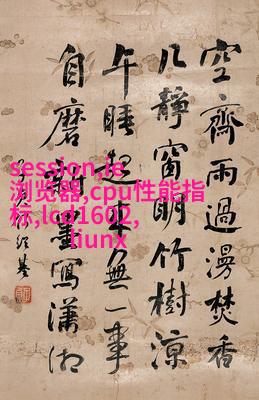 空齋雨過漫焚香
几靜窗明竹樹涼
午睡起來無一事
自磨墨寫瀟湘
session,ie
浏览器,cpu性能指
标,lcd1602,
liunx